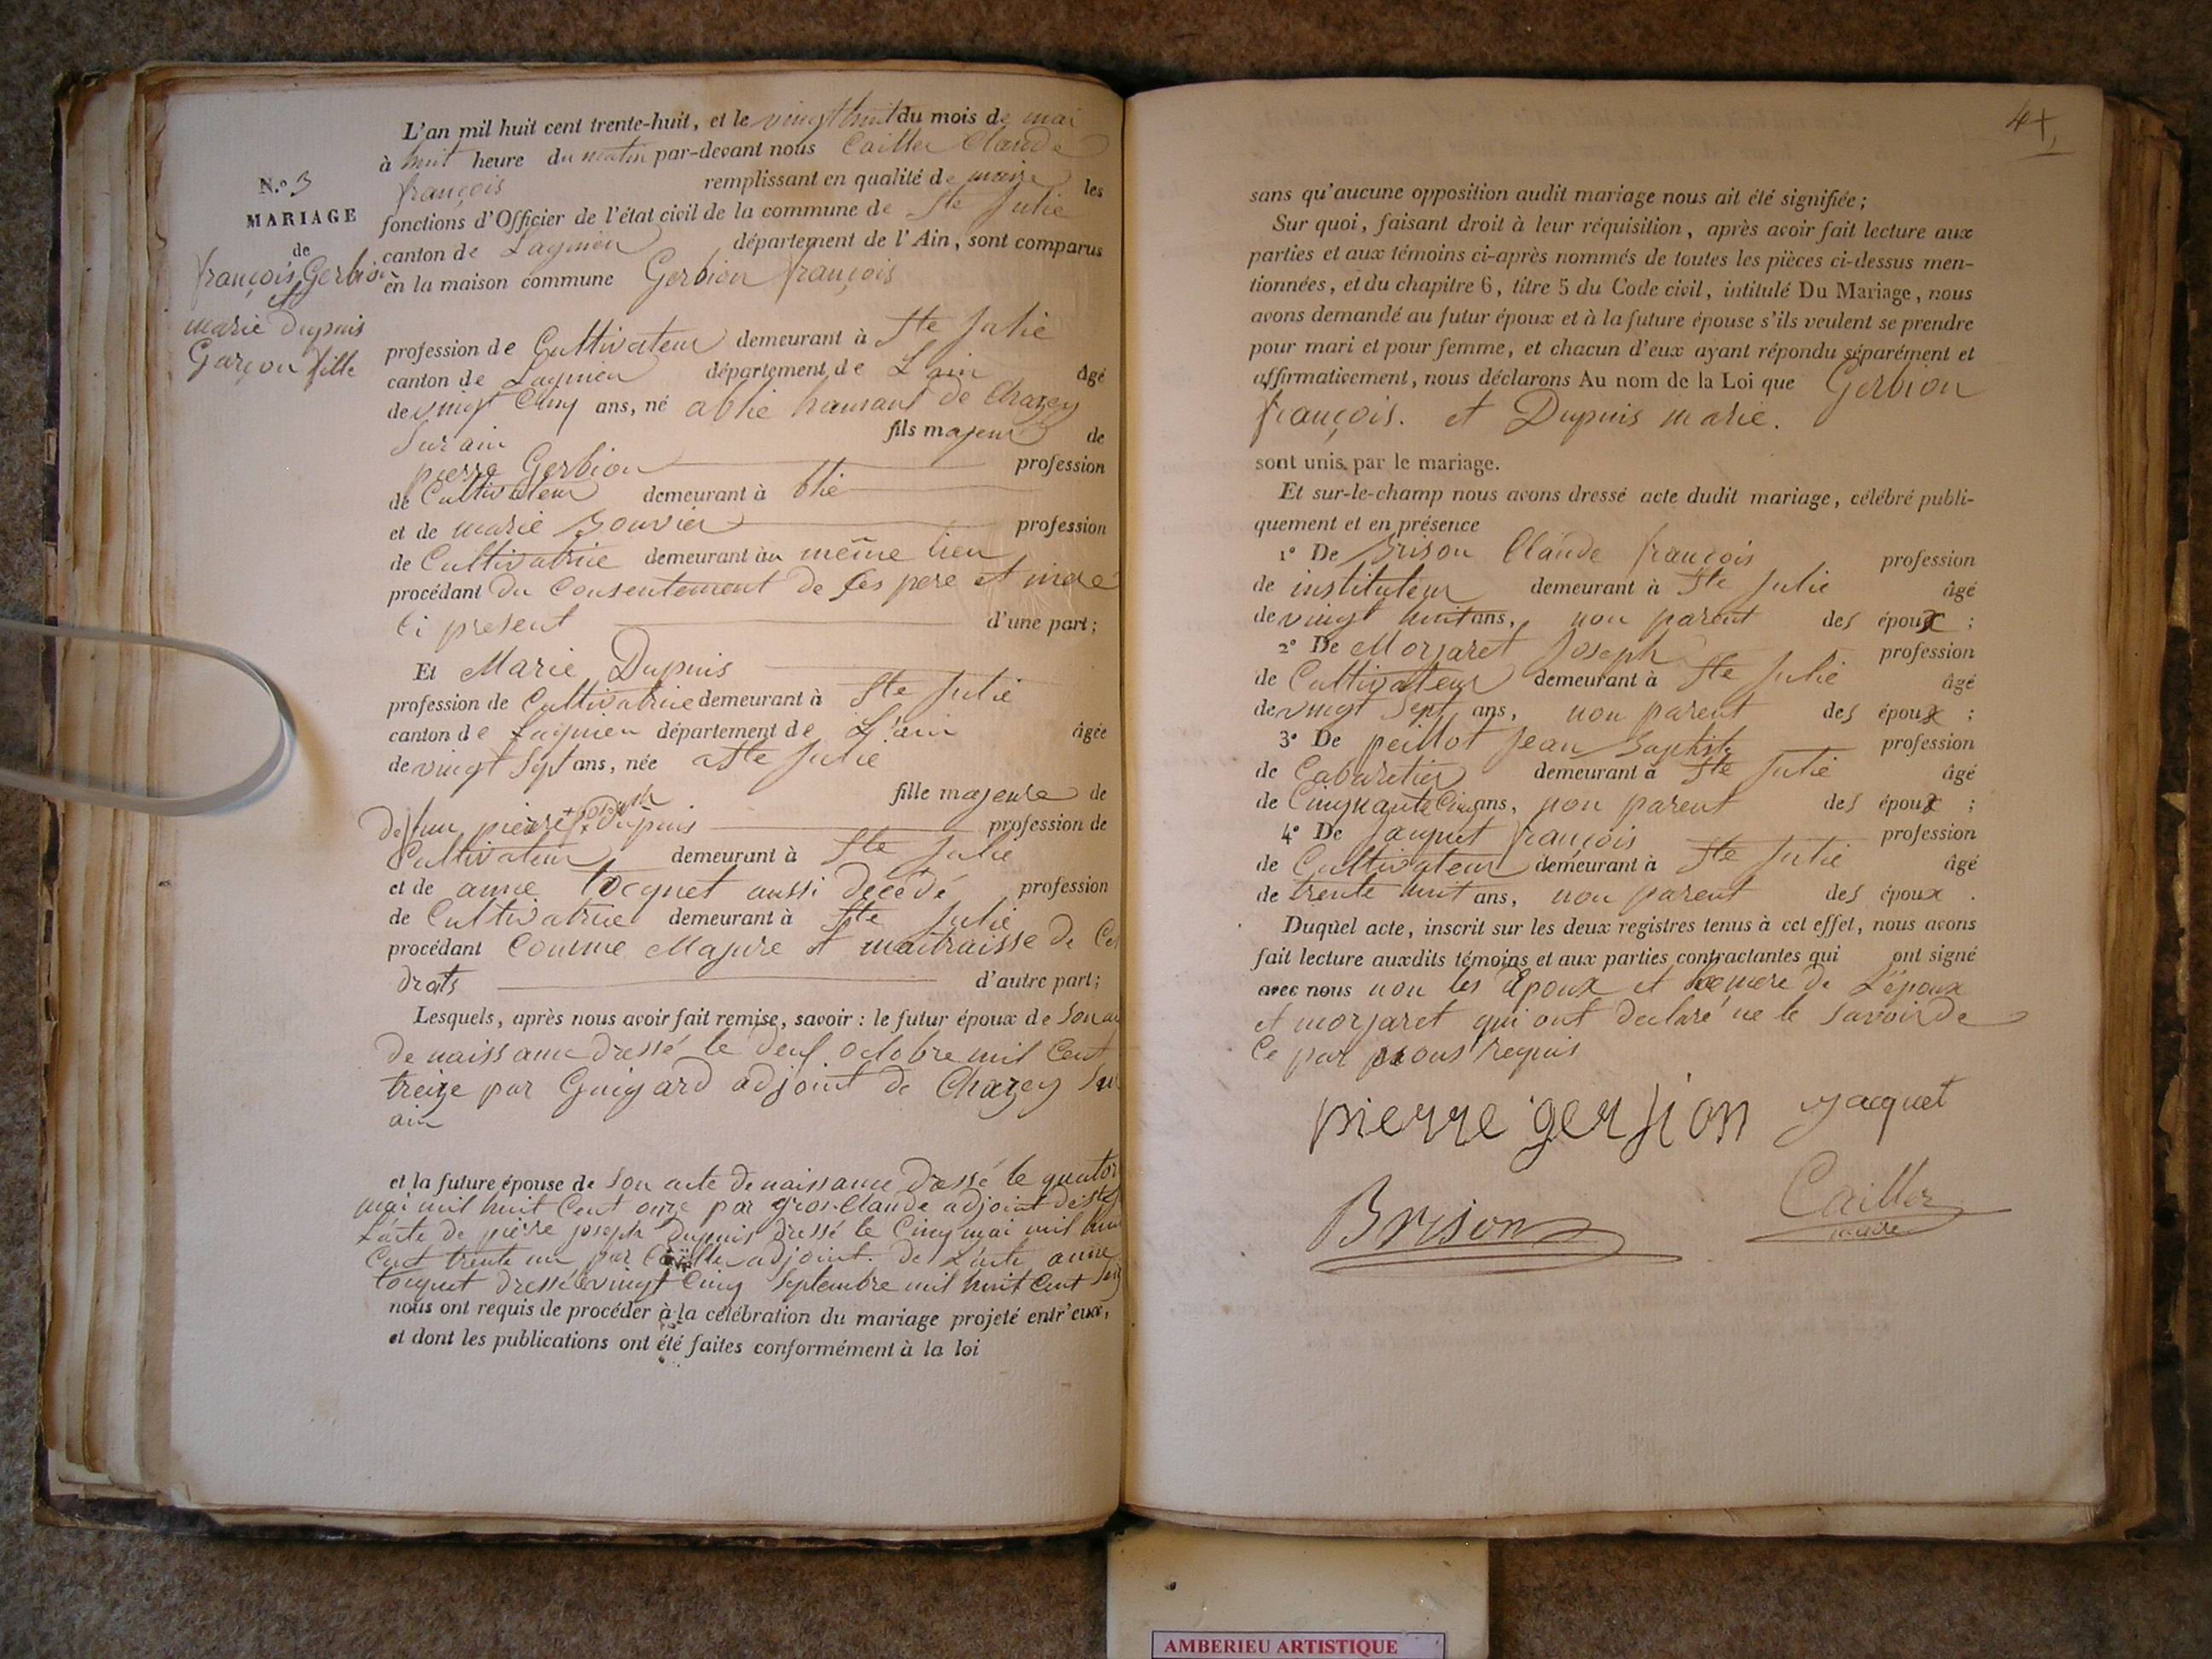 L'an mil huit cent trente-huit, et le vingt huit du mois de mai
à huit heure du matin par-devant nous Cailler Claude
françois remplissant en qualité de maire les
fonctions d'Officier de l'état civil de la commune de Ste Julie
canton de Lagnieu département de l'Ain, sont comparus
en la maison commune Gerbion françois
N.º 3
MARIAGE
de
françois Gerbion
et
marie Dupuis
Garçon fille
profession de Cultivateur demeurant à Ste Julie
canton de Lagnieu département de L'ain âgé
de vingt Cinq ans, né a blie hamant de Chazey
Sur ain fils majeur de
pierre Gerbion profession
de Cultivateur demeurant à blie
et de marie Bouvier profession
de Cultivatrice demeurant au même lieu
procédant du Consentement de ses pere et mere
Ci present d'une part;
Et Marie Dupuis
profession de Cultivatrice demeurant à Ste Julie
canton de Lagnieu département de L'ain âgée
de vingt Sept ans, née a Ste Julie
fille majeure de
De feu pierre + joseph Dupuis profession de
Cultivateur demeurant à Ste Julie
et de anne tocquet aussi décédé profession
de Cultivatrice demeurant à Ste Julie
procédant Comme Majure et maitraisse de Ces
droits d'autre part;
Lesquels, après nous avoir fait remise, savoir : le futur époux de Son
de naissance dressé le deuf octobre mil Cent
treize par Guigard adjoint de Chazey Sur
ain
et la future épouse de Son acte de naissance dressé le quator
mai mil huit Cent onze par gros-Claude adjoint de Ste
L'acte de pierre joseph Dupuis dressé le Cinq mai mil huit
Cent trente un par adjoint. de L'acte anne
tocquet dressé le vingt Cinq Septembre mil huit Cent
nous ont requis de procéder à la célébration du mariage projeté entr'eux,
et dont les publications ont été faites conformément à la loi
41
sans qu'aucune opposition audit mariage nous ait été signifiée;
Sur quoi, faisant droit à leur réquisition, après avoir fait lecture aux
parties et aux témoins ci-après nommés de toutes les pièces ci-dessus men-
tionnées, et du chapitre 6, titre 5 du Code civil, intitulé Du Mariage, nous
avons demandé au futur époux et à la future épouse s'ils veulent se prendre
pour mari et pour femme, et chacun d'eux ayant répondu séparément et
affirmativement, nous déclarons Au nom de la Loi que Gerbion
françois. et Dupuis marie.
sont unis par le mariage.
Et sur-le-champ nous avons dressé acte dudit mariage, célébré publi-
quement et en présence
1º De Brison Claude françois profession
de instituteur demeurant à Ste Julie âgé
de vingt huit ans, non parent des époux ;
2º De Morjaret Joseph profession
de Cultivateur demeurant à Ste Julie âgé
de vingt Sept ans, non parent des époux ;
3º De peillot Jean Baptiste profession
de Cabaretier demeurant à Ste Julie âgé
de Cinquante Cinq ans, non parent des époux ;
4º De Jacquet françois profession
de Cultivateur demeurant à Ste Julie âgé
de trente huit ans, non parent des époux .
Duquel acte, inscrit sur les deux registres tenus à cet effet, nous avons
fait lecture auxdits témoins et aux parties contractantes qui ont signé
avec nous non les Epoux et la mere de L'époux
et morjaret qui ont declaré ne le Savoir de
Ce par nous requis
pierre gerbion Jacquet
Brison Cailler
maire
AMBERIEU ARTISTIQUE